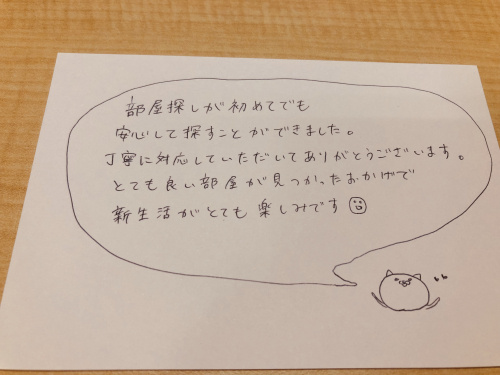 部屋探しが初めてでも
安心して探すことができました。
丁寧に対応していただいてありがとうございます。
とても良い部屋が見つかったおかげで
新生活がとても楽しみです